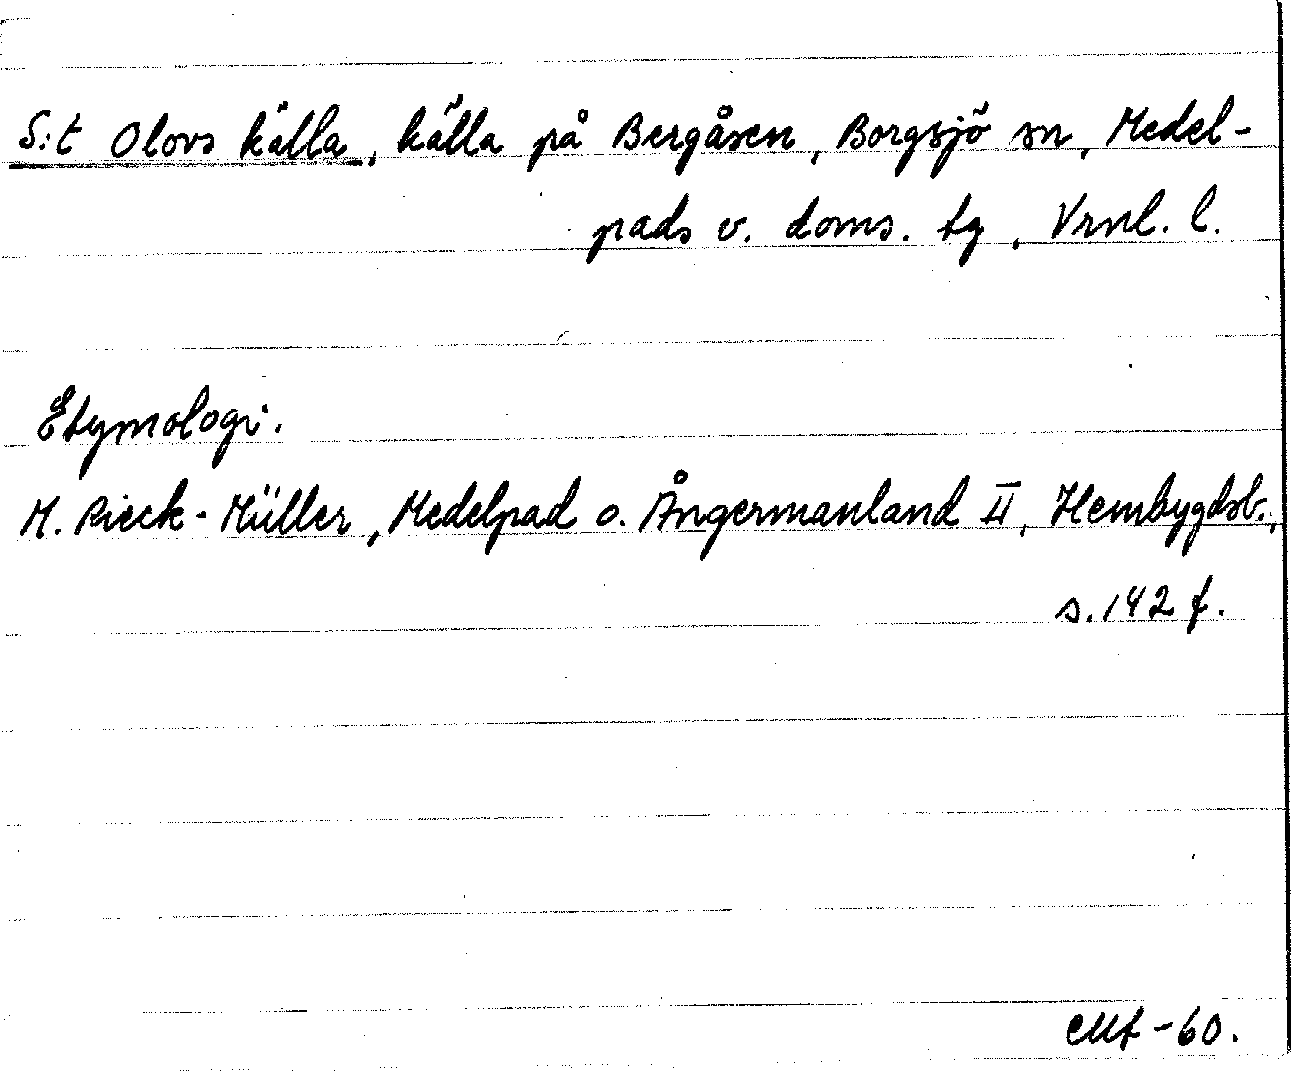 S:t Olovs källa, källa på Bergåsen, Borgsjö sn, Medel-
pads v. doms. tg, Vrnl. l.
Etymologi.
M. Rieck-Müller, Medelpad o. Ångermanland II, Hembygdsb.,
s. 142 f.
CMf -60.